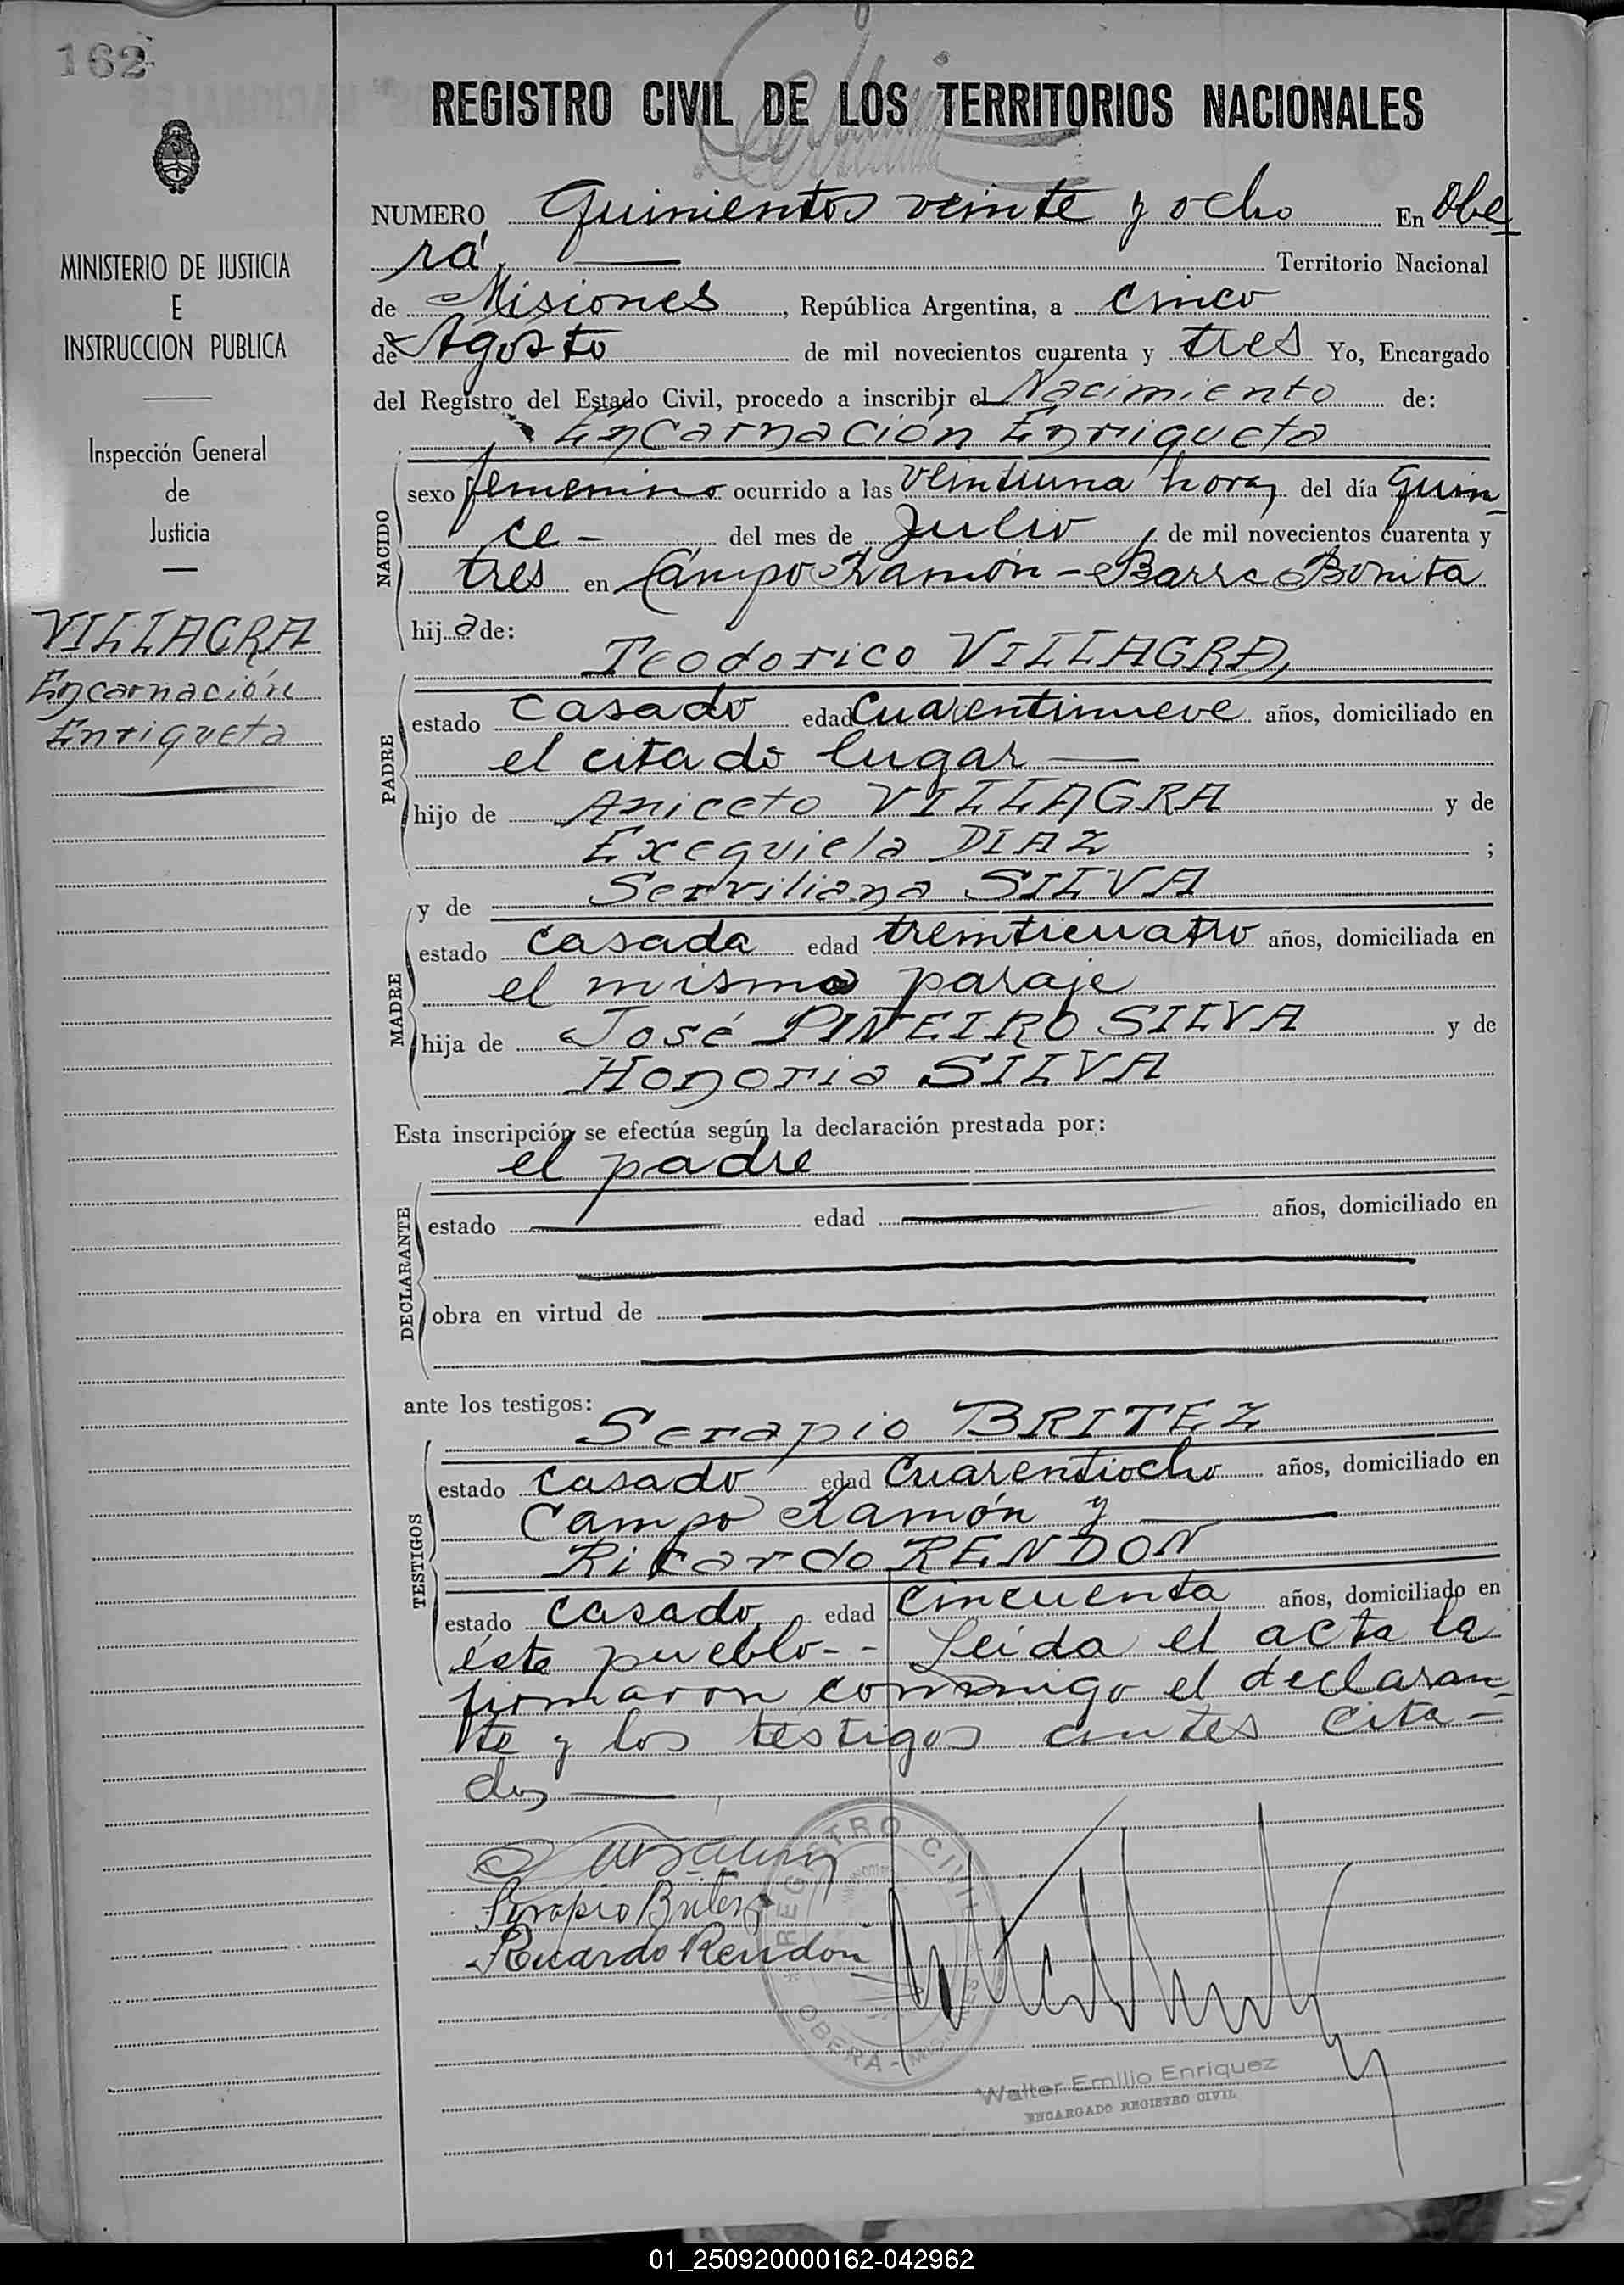 162
REGISTRO CIVIL DE LOS TERRITORIOS NACIONALES
MINISTERIO DE JUSTICIA
E
INSTRUCCION PUBLICA
Inspección General
de
Justicia
VILLAGRA
Encarnación
Enriqueta
NUMERO Quinientos veinte y ocho En Obe
rá Territorio Nacional
de Misiones, República Argentina, a cinco
de Agosto de mil novecientos cuarenta y tres Yo, Encargado
del Registro del Estado Civil, procedo a inscribir el Nacimiento de:
Encarnación Enriqueta
NACIDO
sexo femenino ocurrido a las veintiuna horas del día Quin-
ce - del mes de Julio de mil novecientos cuarenta y
tres en Campo Ramón - Barra Bonita
hij a de:
Teodorico VILLAGRA,
PADRE
estado casado edad cuarentinueve años, domiciliado en
el citado lugar —
hijo de Aniceto VILLAGRA y de
Exequiela DIAZ ;
y de Serviliana SILVA
MADRE
estado casada edad treinticuatro años, domiciliada en
el mismo paraje
hija de José PIÑEIRO SILVA y de
Honoria SILVA
Esta inscripción se efectúa según la declaración prestada por:
el padre
DECLARANTE
estado edad años, domiciliado en
obra en virtud de
ante los testigos:
Serapio BRITEZ
TESTIGOS
estado casado edad cuarentiocho años, domiciliado en
Campo Ramón y —
Ricardo RENDON
estado casado, edad cincuenta años, domiciliado en
éste pueblo - - Leida el acta la
firmaron conmigo el declaran-
te y los testigos antes cita-
dos —
Serapio Britez
Ricardo Rendon
REGISTRO CIVIL
OBERA - MISIONES
Walter Emilio Enriquez
ENCARGADO REGISTRO CIVIL
01_250920000162-042962